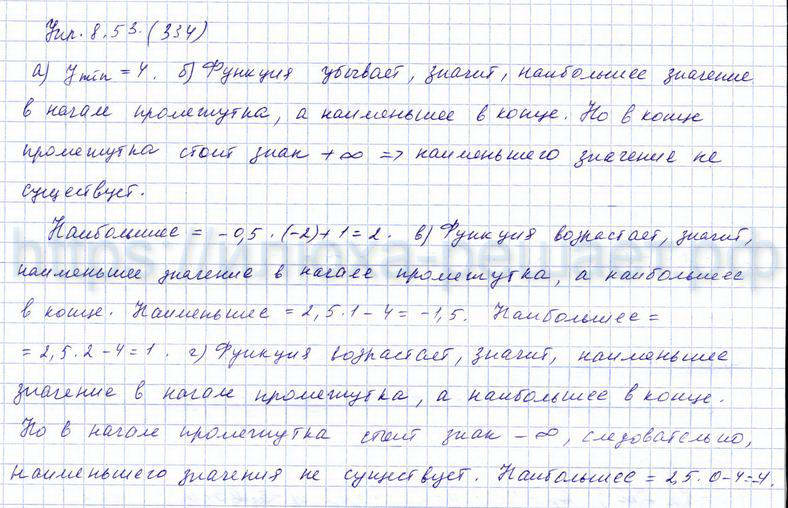 Упр. 8.53. (334)
а) Ymin = 4. б) Функция убывает, значит, наибольшее значение
в начале промежутка, а наименьшее в конце. Но в конце
промежутка стоит знак +∞ => наименьшего значение не
существует.
Наибольшее = -0,5 · (-2) + 1 = 2. в) Функция возрастает, значит,
наименьшее значение в начале промежутка, а наибольшее
в конце. Наименьшее = 2,5 · 1 - 4 = -1,5. Наибольшее =
= 2,5 · 2 - 4 = 1. г) Функция возрастает, значит, наименьшее
значение в начале промежутка, а наибольшее в конце.
Но в начале промежутка стоит знак -∞, следовательно,
наименьшего значения не существует. Наибольшее = 2,5 · 0 - 4 = -4.